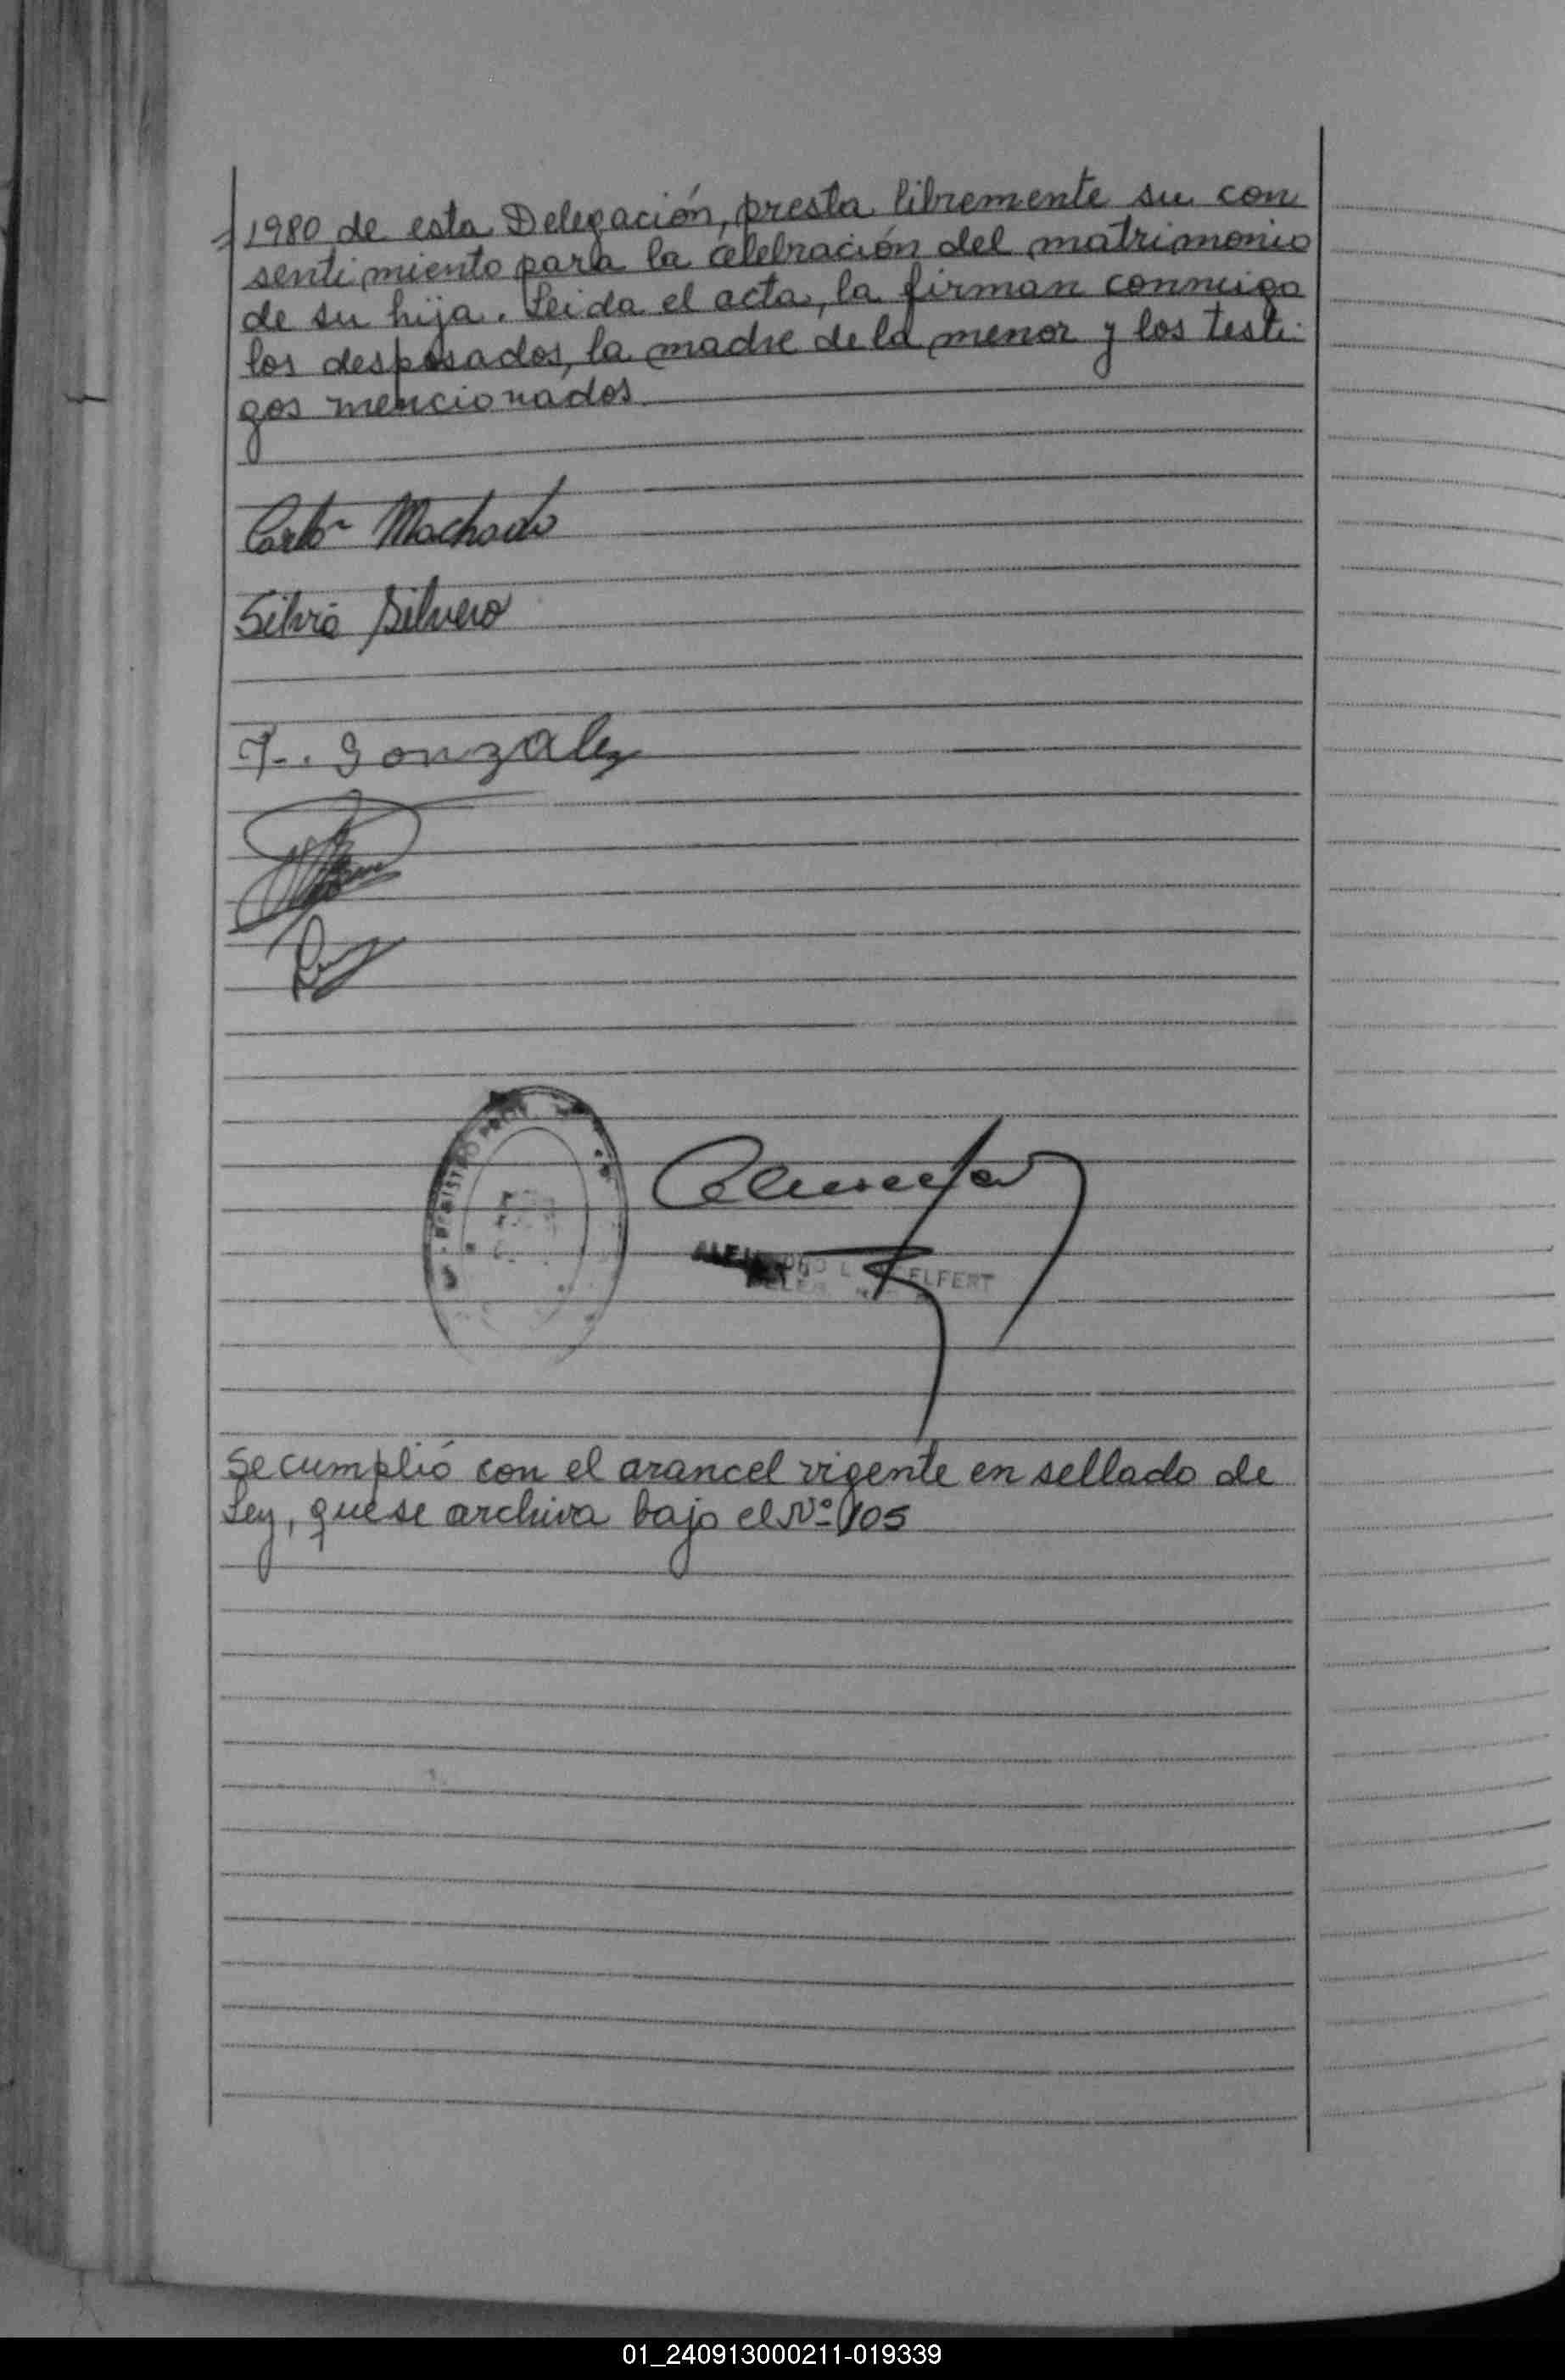 = 1980 de esta Delegación, presta libremente su con
sentimiento para la celebración del matrimonio
de su hija. Leida el acta, la firman conmigo
los desposados, la madre de la menor y los testi-
gos mencionados
Carlos Machado
Silvia Silvero
T. Gonzalez
REGISTRO
ELFERT
Se cumplió con el arancel vigente en sellado de
Ley, que se archiva bajo el Nº 105
01_240913000211-019339